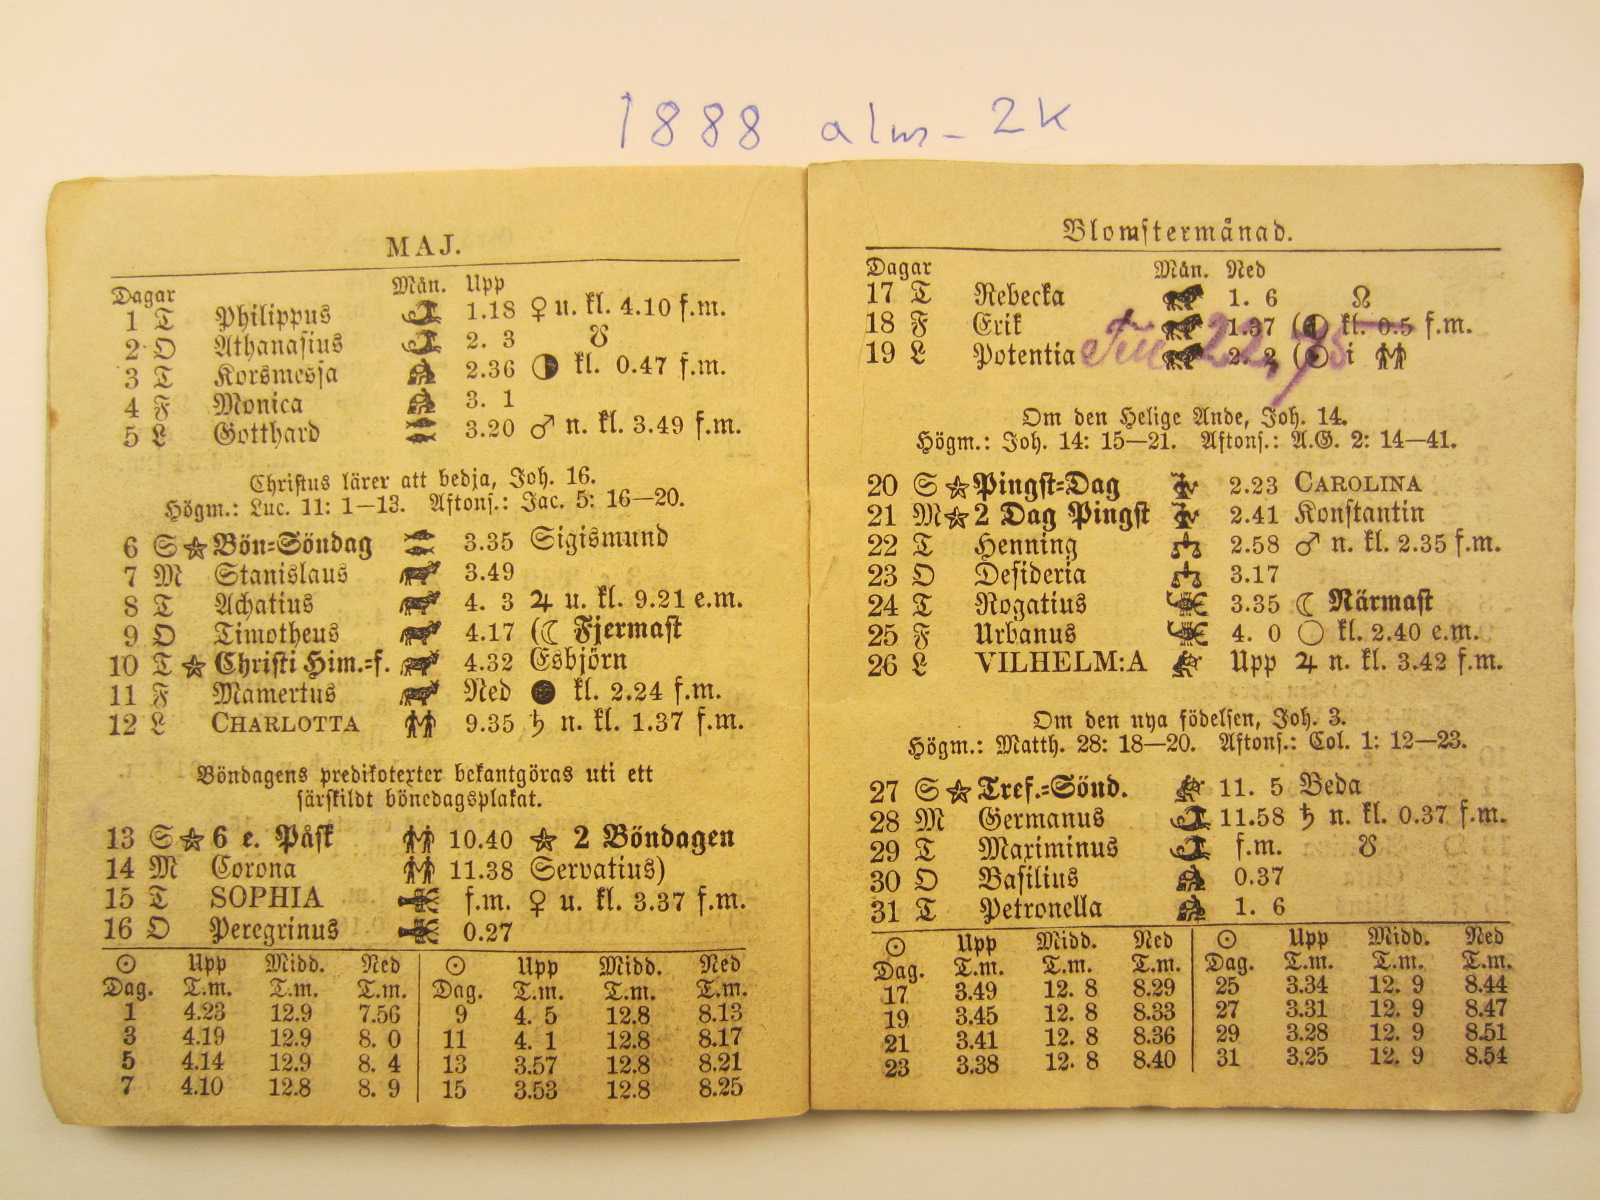 1888 alm- 2K
MAJ.
Dagar Mån. Upp
1 T Philippus 1.18 ♀ u. kl. 4.10 f.m.
2 O Athanasius 2. 3 ☋
3 T Korsmessa 2.36 kl. 0.47 f.m.
4 F Monica 3. 1
5 L Gotthard 3.20 ♂ n. kl. 3.49 f.m.
Christus lärer att bedja, Joh. 16.
Högm.: Luc. 11: 1—13. Aftons.: Jac. 5: 16—20.
6 S ☆ Bön=Söndag 3.35 Sigismund
7 M Stanislaus 3.49
8 T Achatius 4. 3 ♃ u. kl. 9.21 e.m.
9 O Timotheus 4.17 (☾ Fjermast
10 T ☆ Christi Him.=f. 4.32 Esbjörn
11 F Mamertus Ned ● kl. 2.24 f.m.
12 L CHARLOTTA 9.35 ♄ n. kl. 1.37 f.m.
Böndagens predikotexter bekantgöras uti ett
särskildt bönedagsplakat.
13 S ☆ 6 e. Påsk 10.40 ☆ 2 Böndagen
14 M Corona 11.38 Servatius)
15 T SOPHIA f.m. ♀ u. kl. 3.37 f.m.
16 O Peregrinus 0.27
☉ Upp Midd. Ned ☉ Upp Midd. Ned
Dag. T.m. T.m. T.m. Dag. T.m. T.m. T.m.
1 4.23 12.9 7.56 9 4. 5 12.8 8.13
3 4.19 12.9 8. 0 11 4. 1 12.8 8.17
5 4.14 12.9 8. 4 13 3.57 12.8 8.21
7 4.10 12.8 8. 9 15 3.53 12.8 8.25
Blomstermånad.
Dagar Mån. Ned
17 T Rebecka 1. 6 ☊
18 F Erik 1.37 ( kl. 0.5 f.m.
19 L Potentia 2. 2 ( i
Om den Helige Ande, Joh. 14.
Högm.: Joh. 14: 15—21. Aftons.: A.G. 2: 14—41.
20 S ☆ Pingst=Dag 2.23 CAROLINA
21 M ☆ 2 Dag Pingst 2.41 Konstantin
22 T Henning 2.58 ♂ n. kl. 2.35 f.m.
23 O Desideria 3.17
24 T Rogatius 3.35 ☾ Närmast
25 F Urbanus 4. 0 ○ kl. 2.40 e.m.
26 L VILHELM:A Upp ♃ n. kl. 3.42 f.m.
Om den nya födelsen, Joh. 3.
Högm.: Matth. 28: 18—20. Aftons.: Col. 1: 12—23.
27 S ☆ Tref.=Sönd. 11. 5 Beda
28 M Germanus 11.58 ♄ n. kl. 0.37 f.m.
29 T Maximinus f.m. ☋
30 O Basilius 0.37
31 T Petronella 1. 6
☉ Upp Midd. Ned ☉ Upp Midd. Ned
Dag. T.m. T.m. T.m. Dag. T.m. T.m. T.m.
17 3.49 12. 8 8.29 25 3.34 12. 9 8.44
19 3.45 12. 8 8.33 27 3.31 12. 9 8.47
21 3.41 12. 8 8.36 29 3.28 12. 9 8.51
23 3.38 12. 8 8.40 31 3.25 12. 9 8.54